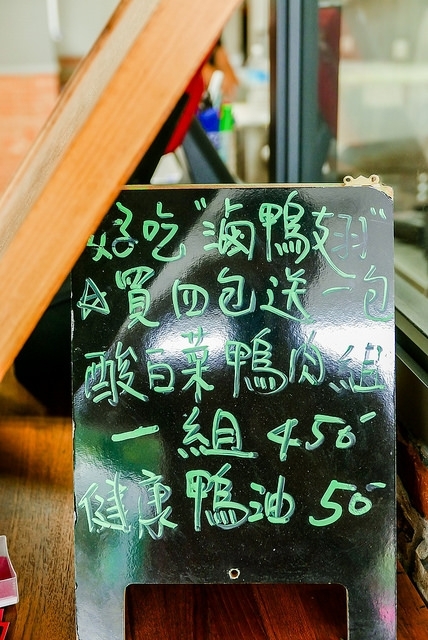 好吃"滷鴨翅"
☆買四包送一包
酸白菜鴨肉組
一組450-
健康鴨油50-